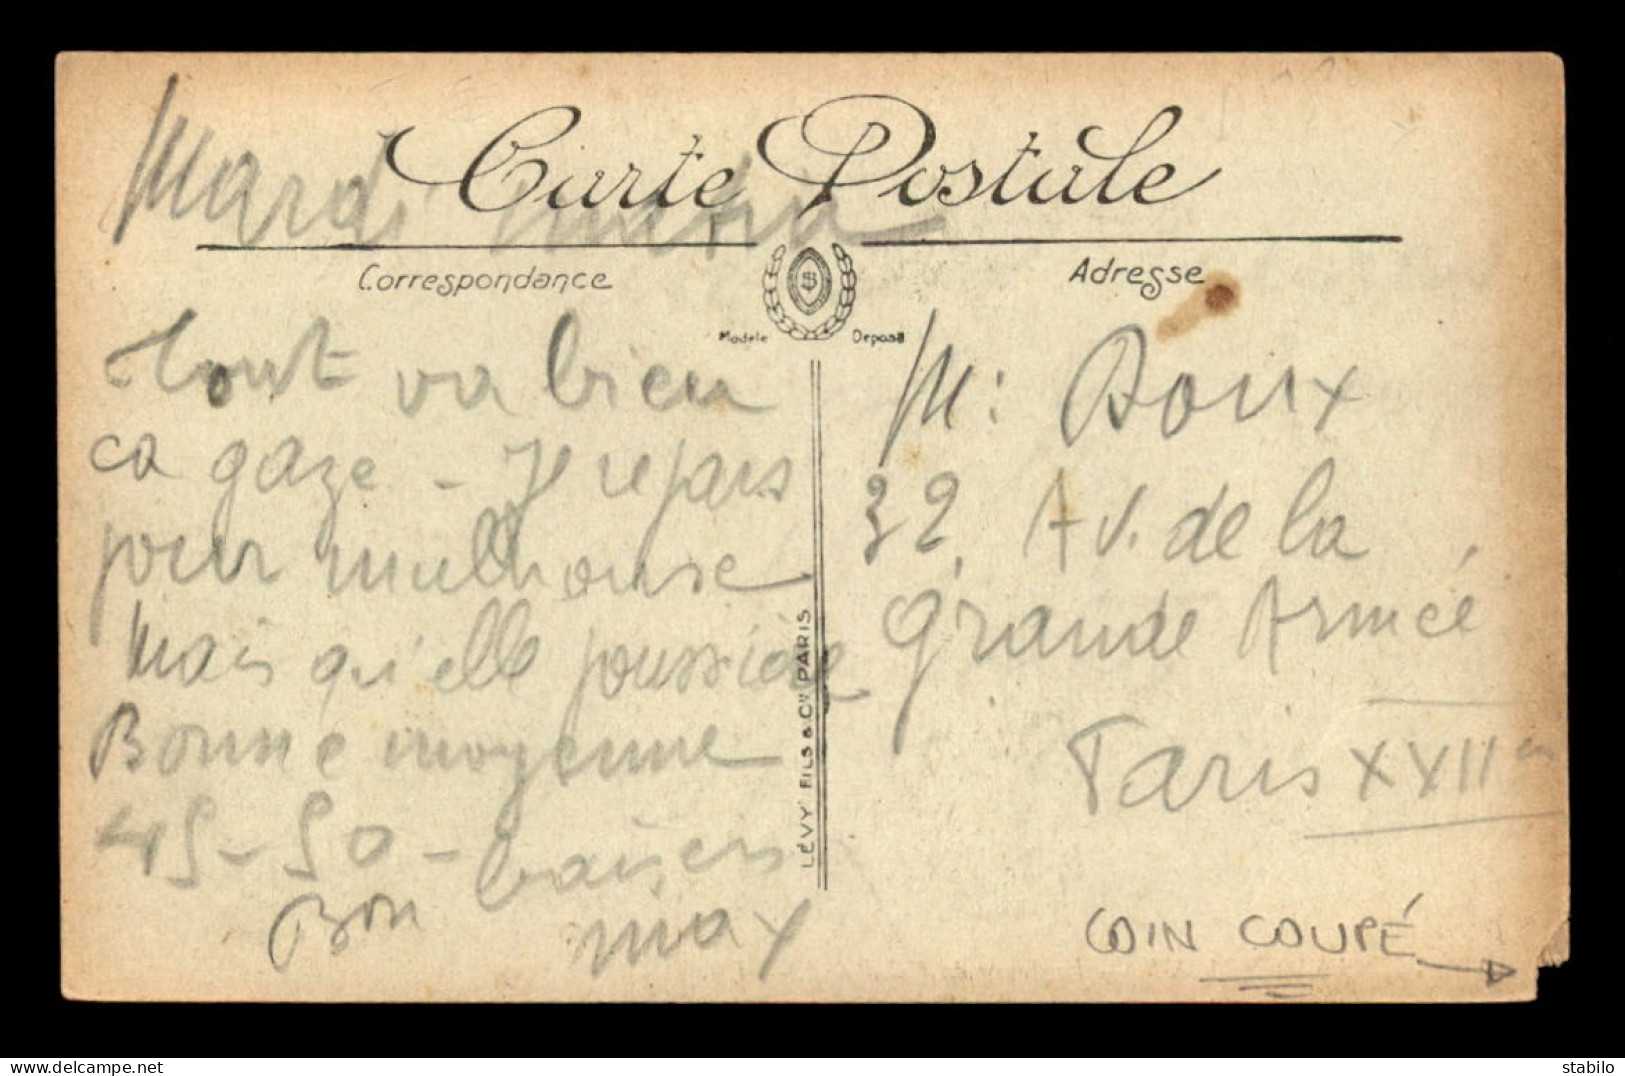 Carte Postale
Mardi matin
Correspondance
Adresse
Modèle Déposé
Tout va bien
ca gaze - Je repars
pour mulhouse
Mais qu'elle poussière
Bonne moyenne
45-50 - baisers
Bon
max
LÉVY FILS & Cie PARIS
M: Boux
32, Av. de la
Grande Armée
Paris XVII
COIN COUPÉ
delcampe.net
stabilo